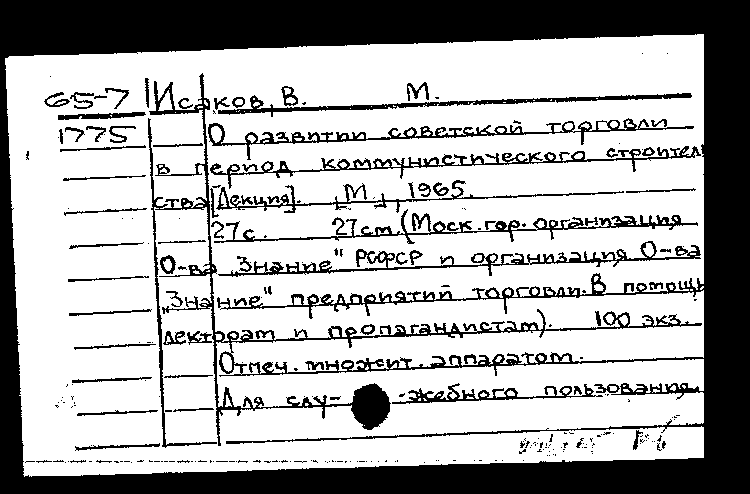 65-7 Исаков, В. М.
1775 О развитии советской торговли
в период коммунистического строитель
ства [Лекция]. [М.], 1965.
27с. 27см. (Моск. гор. организация
О-ва „Знание" РСФСР и организация О-ва
„Знание" предприятий торговли. В помощь
лекторам и пропагандистам). 100 экз.
Отпеч. множит. аппаратом.
Для слу- -жебного пользования.